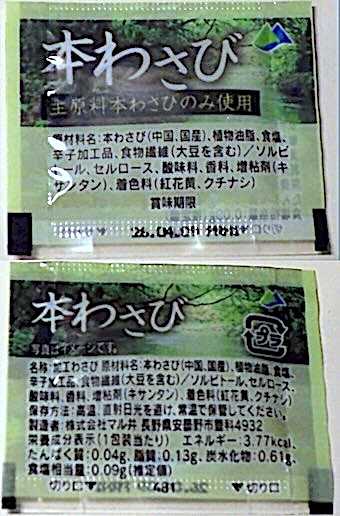 本わさび
主原料本わさびのみ使用
原材料名：本わさび(中国、国産)、植物油脂、食塩、
辛子加工品、食物繊維(大豆を含む)／ソルビ
トール、セルロース、酸味料、香料、増粘剤(キ
サンタン)、着色料(紅花黄、クチナシ)
賞味期限
切り口▼
本わさび
プラ
写真はイメージです。
名称：加工わさび 原材料名：本わさび(中国、国産)、植物油脂、食塩、
辛子加工品、食物繊維(大豆を含む)／ソルビトール、セルロース、
酸味料、香料、増粘剤(キサンタン)、着色料(紅花黄、クチナシ)
保存方法：高温、直射日光を避け、常温で保管してください。
製造者：株式会社マル井 長野県安曇野市豊科4932
栄養成分表示(1包装当たり) エネルギー：3.77kcal、
たんぱく質：0.04g、脂質：0.13g、炭水化物：0.61g、
食塩相当量：0.09g(推定値)
▼切り口 切り口▼